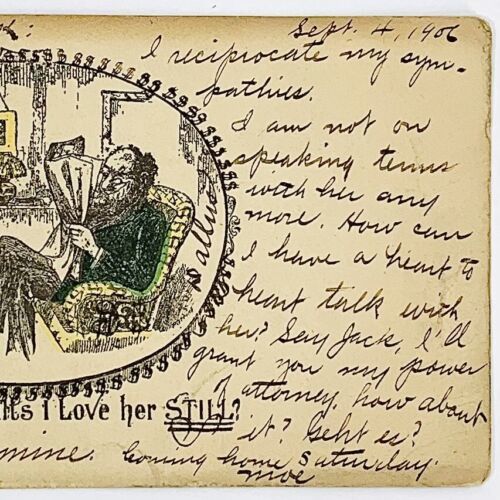 Sept. 4, 1906
I reciprocate my sym-
pathies.
I am not on
speaking terms
with her any
more. How can
I have a heart to
heart talk with
her? Say Jack, I'll
grant you my power
of attorney, how about
it? Geht es?
i Love her STILL?
mine. Coming home Saturday.
Moe